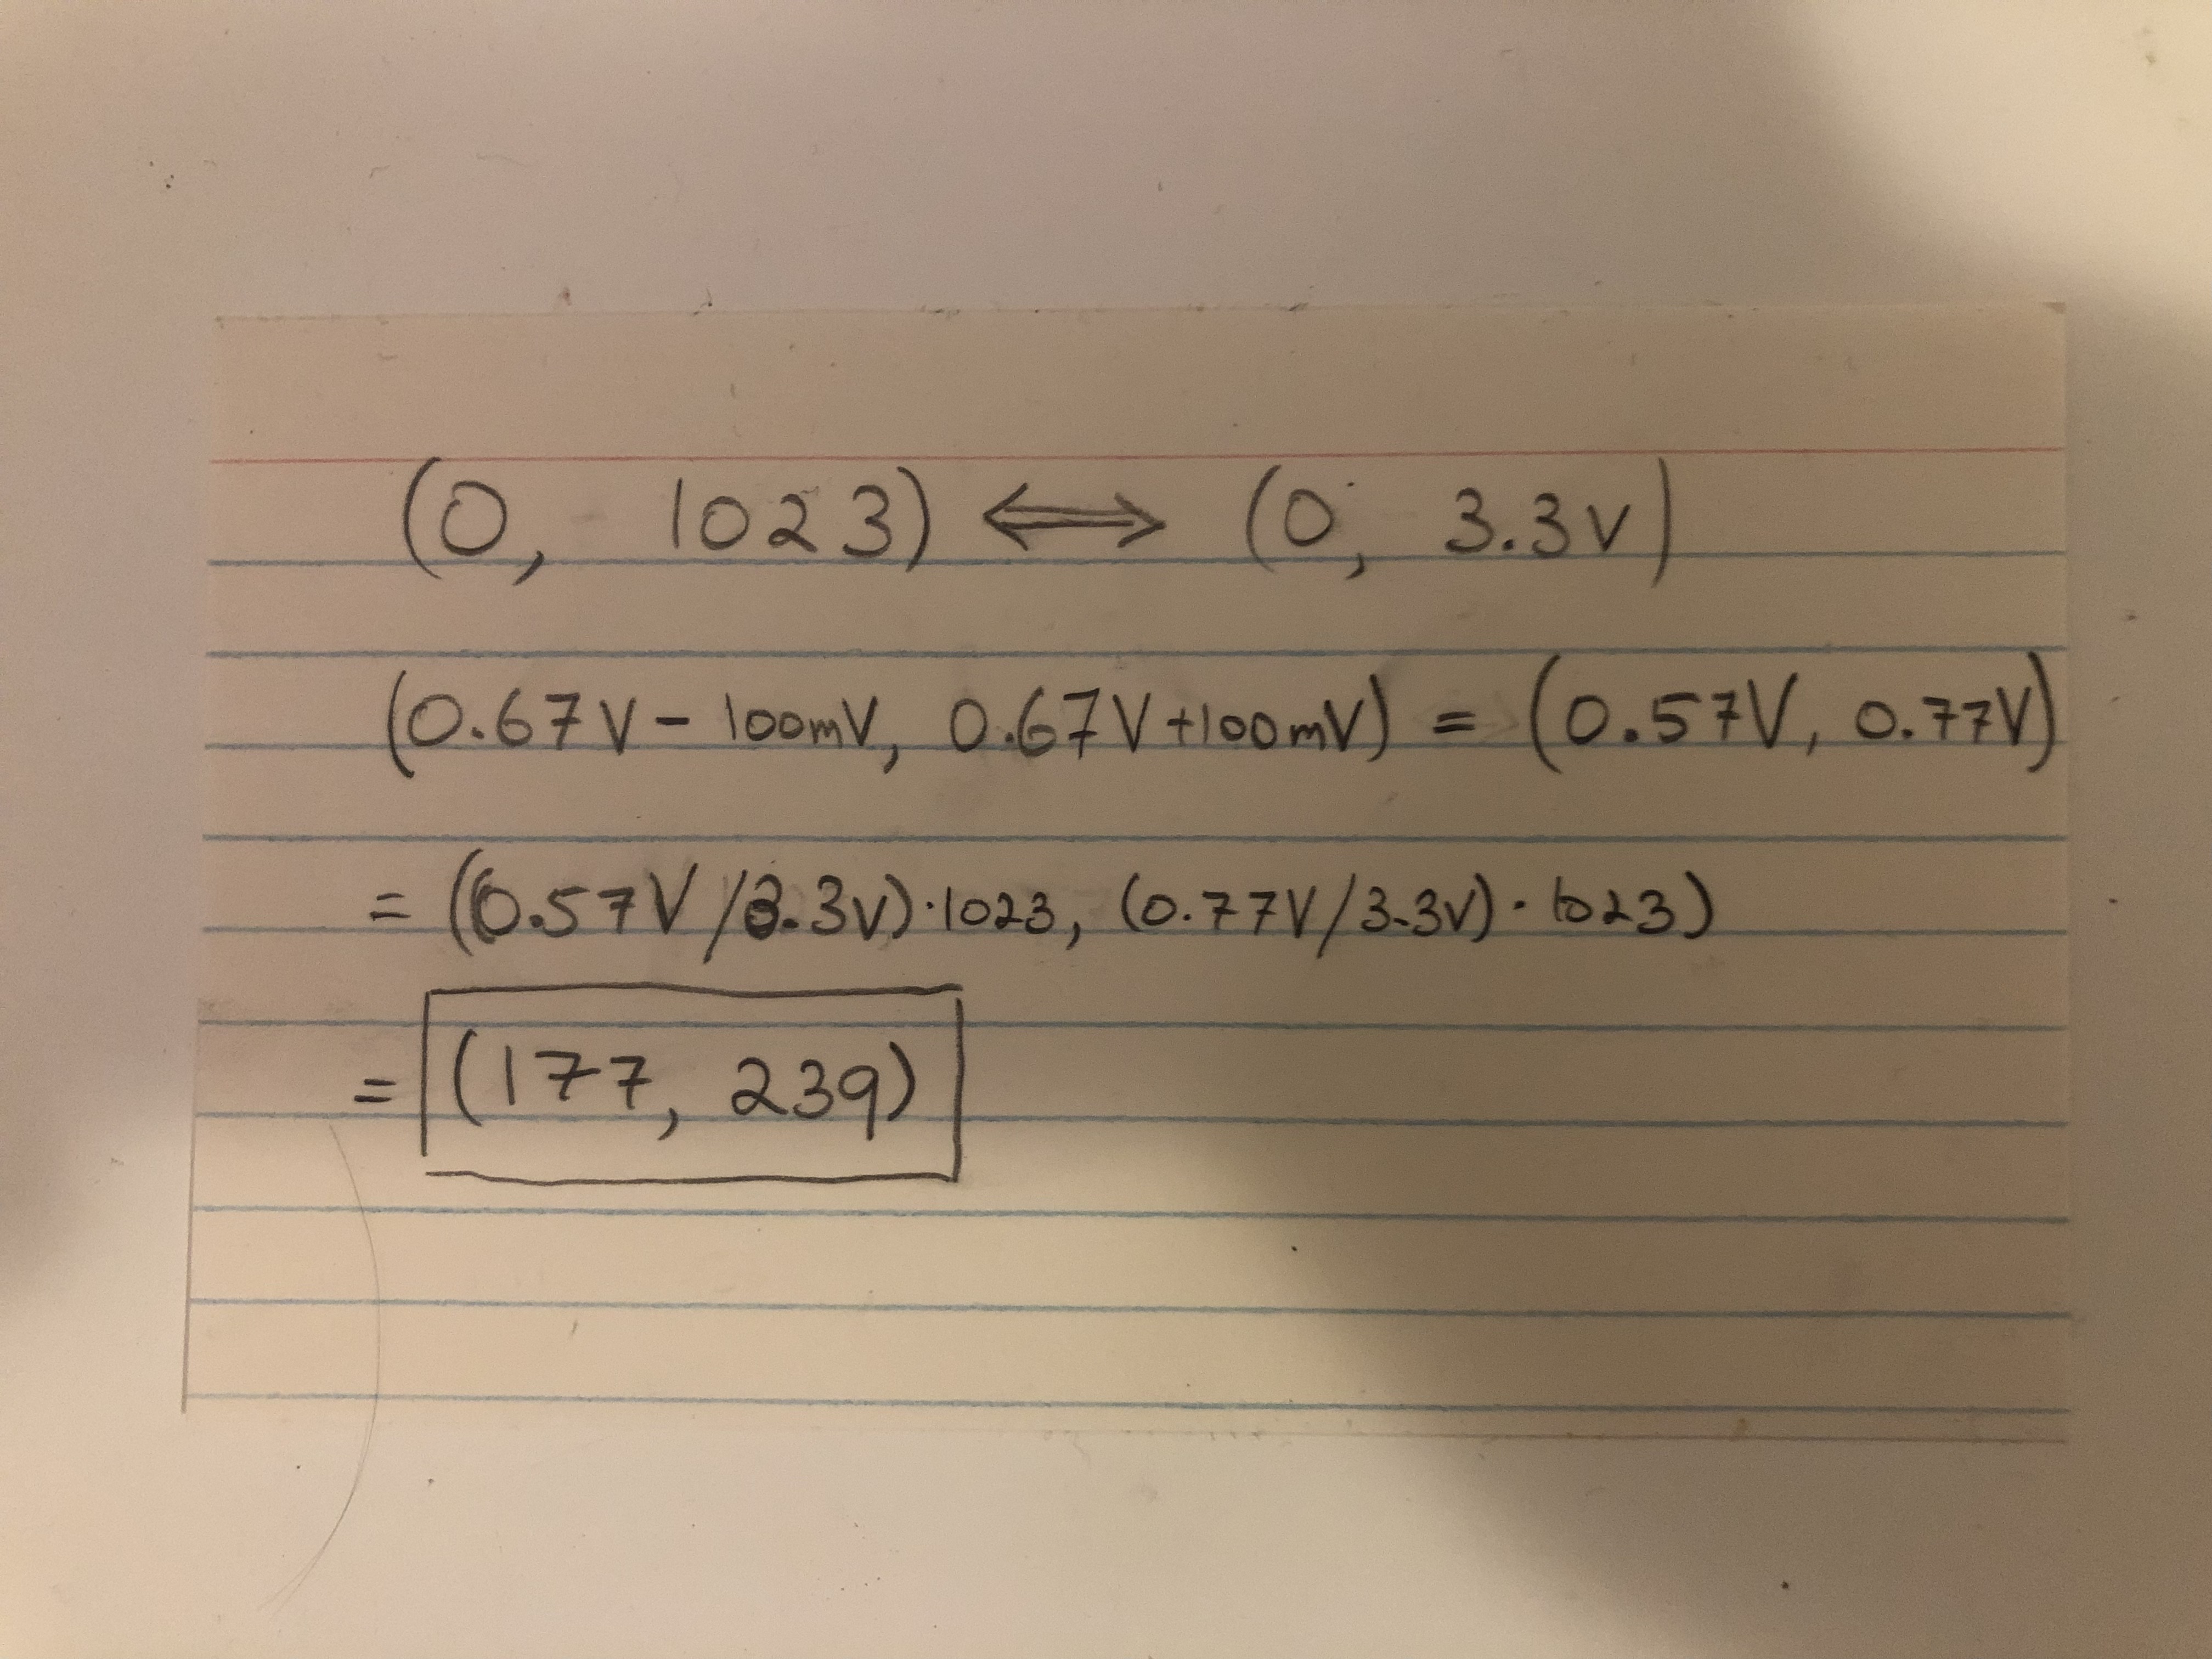 (0, 1023) ⟺ (0, 3.3v)
(0.67V - 100mV, 0.67V+100mV) = (0.57V, 0.77V)
= ((0.57V/3.3v)·1023, (0.77V/3.3V)·1023)
= (177, 239)